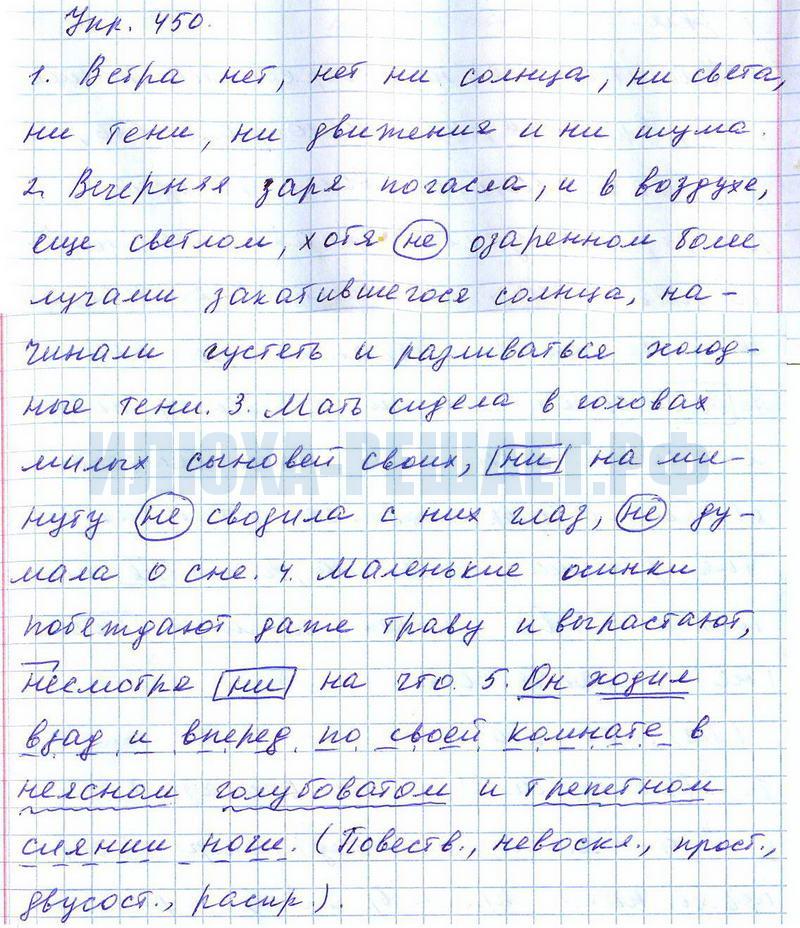 Упр. 450.
1. Ветра нет, нет ни солнца, ни света,
ни тени, ни движения и ни шума.
2. Вечерняя заря погасла, и в воздухе,
еще светлом, хотя не озаренном боле
лучами закатившегося солнца, на-
чинали густеть и разливаться холод-
ные тени. 3. Мать сидела в головах
ИЛЮХА-РЕШАЛ.РФ
милых сыновей своих, ни на ми-
нуту не сводила с них глаз, не ду-
мала о сне. 4. Маленькие осинки
побеждают даже траву и вырастают,
несмотря ни на что. 5. Он ходил
взад и вперед по своей комнате в
неясном голубоватом и трепетном
сиянии ночи. (Повеств., невоскл., прост.,
двусост., распр.).